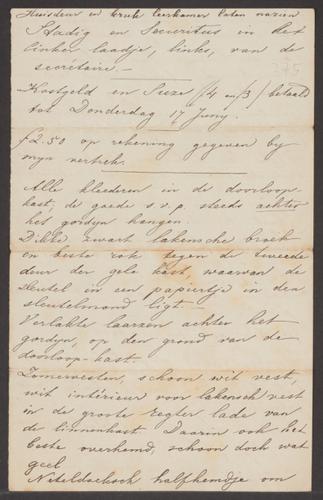 Huisdeur en kruk leerkamer laten nazien
Stadig en Securitas in het
linker laadje, links, van de
secrétaire.—
Kostgeld en Suze (4 en 3) betaald
tot Donderdag 17 Juny.
f 2.50 op rekening gegeven by
myn vertrek.
Alle klederen in de doorloop-
kast, de goede s.v.p. steeds achter
het gordyn hangen.
Dikke, zwart lakensche broek
en beste rok tegen de tweede
deur der gele kast, waarvan de
sleutel in een papiertje in den
sleutelmond ligt.—
Verlakte laarzen achter het
gordyn, op den grond van de
doorloop-kast.
Zomervesten, schoon wit vest,
wit intérieur voor lakensch vest
in de groote regter lade van
de linnenkast. Daarin ook het
beste overhemd, schoon doch wat
geel
Neteldoeksch halfhemdje om